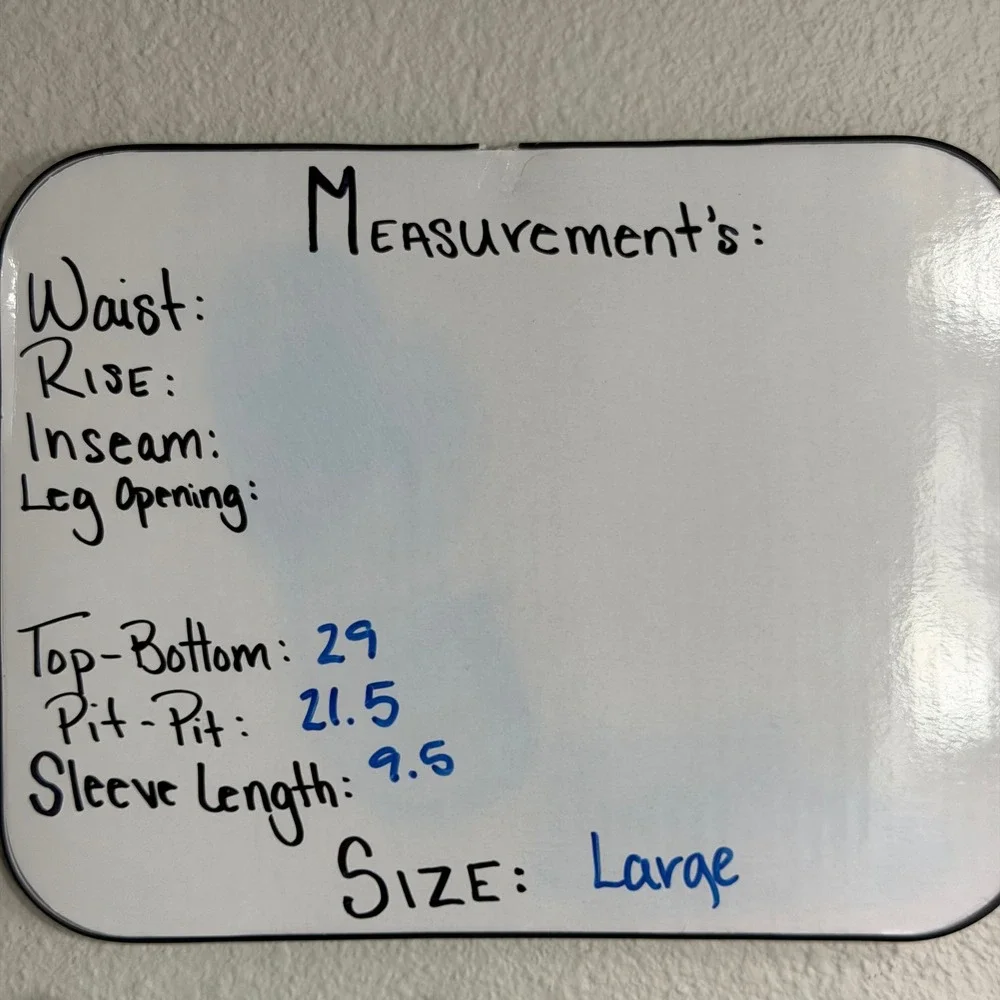 MEASurement's:
Waist:
RISE:
Inseam:
Leg Opening:
Top-Bottom: 29
Pit-Pit: 21.5
Sleeve Length: 9.5
SIZE: Large